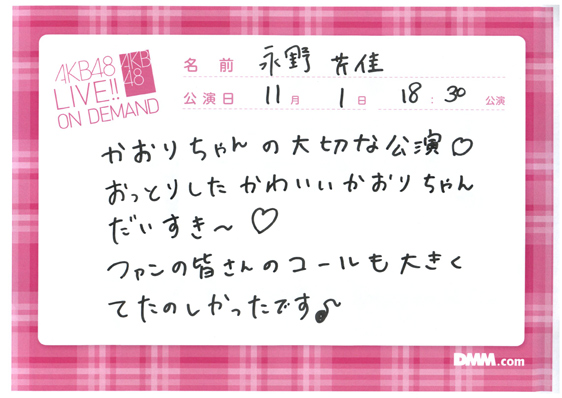 AKB48
LIVE!!
ON DEMAND
AKB
48
名前 永野 芹佳
公演日 11月 1日 18:30 公演
かおりちゃんの大切な公演♡
おっとりしたかわいいかおりちゃん
だいすき〜♡
ファンの皆さんのコールも大きく
てたのしかったです♪
DMM.com